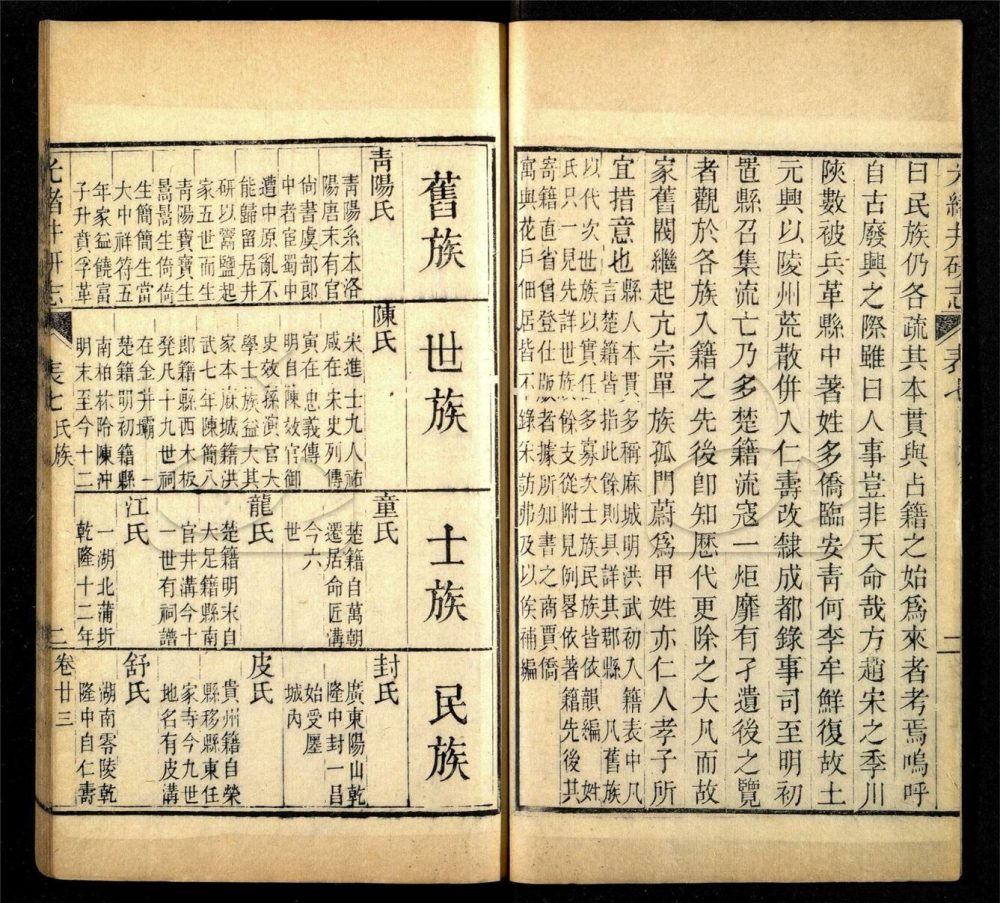 曰民族仍各疏其本貫與占籍之始爲來者考焉嗚呼
自古廢興之際雖曰人事豈非天命哉方趙宋之季川
陝數被兵革縣中著姓多僑臨安青何李牟鮮復故土
元興以陵州荒散併入仁壽改隸成都錄事司至明初
置縣召集流亡乃多楚籍流寇一炬靡有孑遺後之覽
者觀於各族入籍之先後卽知歷代更除之大凡而故
家舊閥繼起亢宗單族孤門蔚爲甲姓亦仁人孝子所
宜措意也縣人本貫多稱麻城明洪武初入籍表中凡
言楚籍者皆指此餘則具詳其郡縣凡舊族
以代次世族以實任多寡次士族民族皆依韻編姓
氏只一見先詳世族餘支從附見例畧依著籍先後其
寄籍直省曾登仕版者據所知書之商賈僑
寓與花戶佃居皆不錄采訪弗及以俟補編
舊族
青陽氏
青陽系本洛
陽唐末有官
尙書虞部郞
中者宦蜀中
遭中原亂不
能歸留居井
研以鬻鹽起
家五世而生
青陽寶寶生
暠暠生倚倚
生簡簡生當
大中祥符五
年家益饒富
子升賁孚革
世族
陳氏
宋進士九人祐
咸在宋史列傳
寅在忠義傳一
明自陳效官御
史效孫演官大
學士族益大其
家本麻城籍洪
武七年陳簡八
郎籍縣西木板
凡十九世祠
在金井壩 一
楚籍明初籍縣
南柏林陳沖
明末至今十二
士族
童氏
楚籍自萬朝
遷居命匠溝
今六
世
龍氏
楚籍明末自
大足籍縣南
官井溝今十
一世有祠譜
江氏
一湖北蒲圻
乾隆十二年
民族
封氏
廣東陽山乾
隆中封一昌
始受廛
城內
皮氏
貴州籍自榮
縣移縣東任
家寺今九世
地名有皮溝
舒氏
湖南零陵乾
隆中自仁壽
光緒井研志 表七 氏族 二 卷廿三